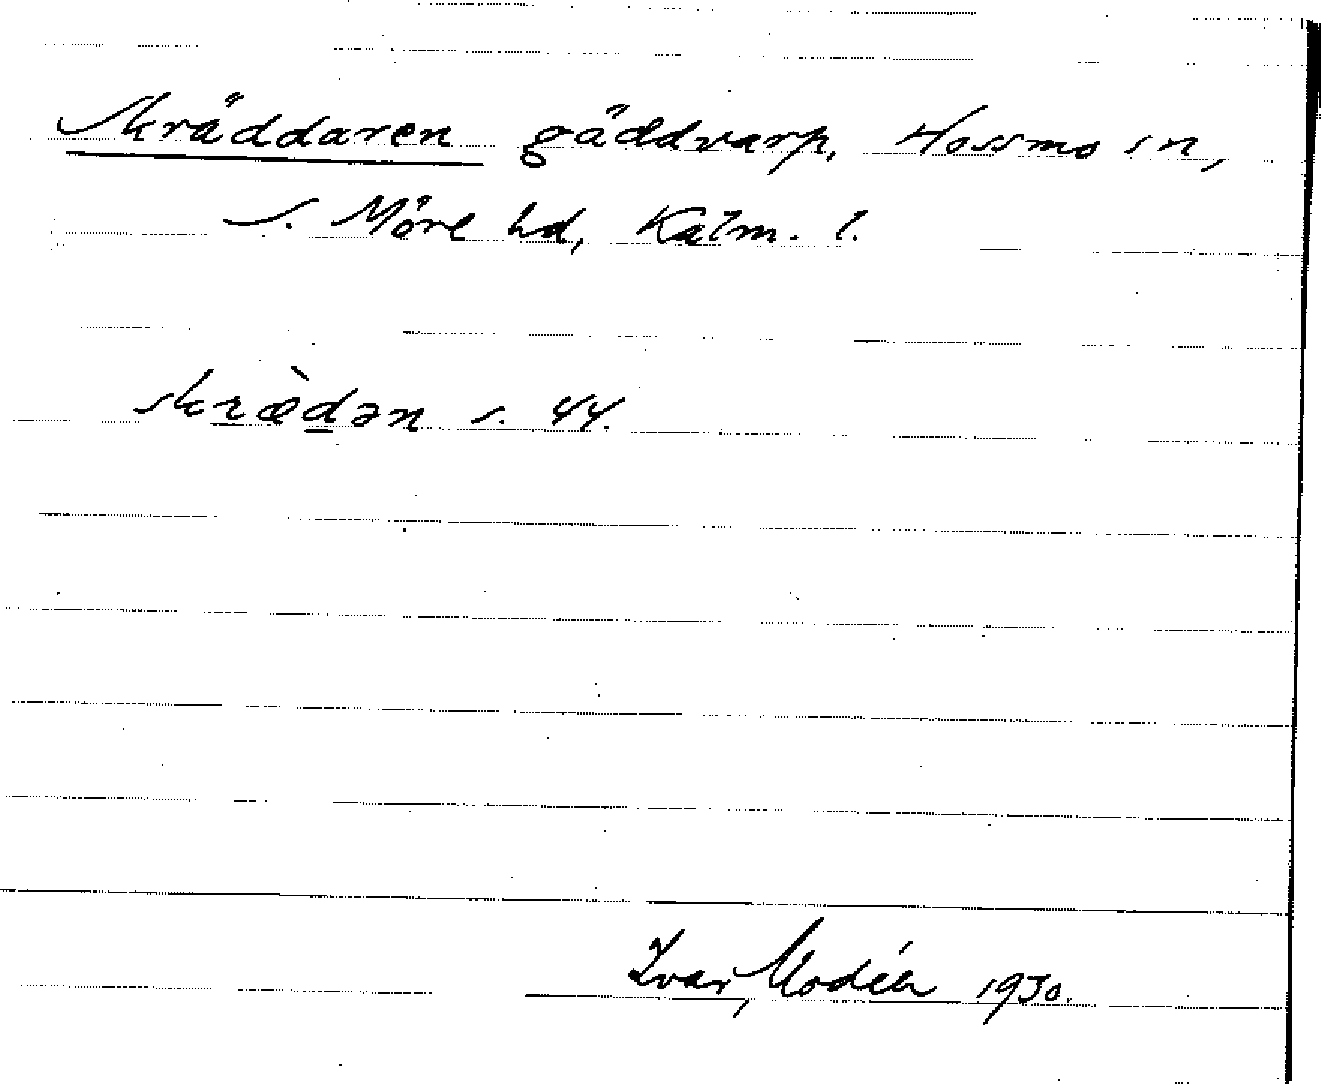 Skräddaren gäddvarp, Hossmo sn,
S. Möre hd, Kalm. l.
skræ̀dən s. 44.
Ivar Modéer 1930.